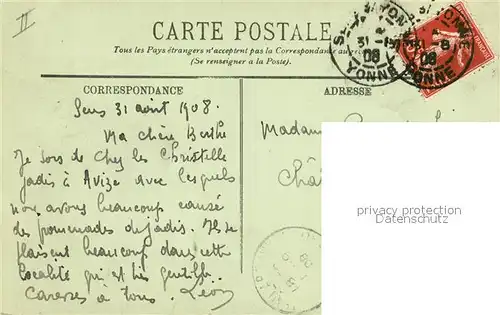 II
CARTE POSTALE
Tous les Pays étrangers n'acceptent pas la Correspondance au recto
(Se renseigner à la Poste).
CORRESPONDANCE
ADRESSE
Sens 31 août 1908.
Ma chère Berthe
Je sors de chez les Christelle
jadis à Avize avec lesquels
nous avons beaucoup causé
des promenades de jadis. Ils se
plaisent beaucoup dans cette
localité qui est très gentille.
Caresses à tous. Léon
Madame
Châ
YONNE
31 -8
08
YONNE
privacy protection
www.oldthing.de